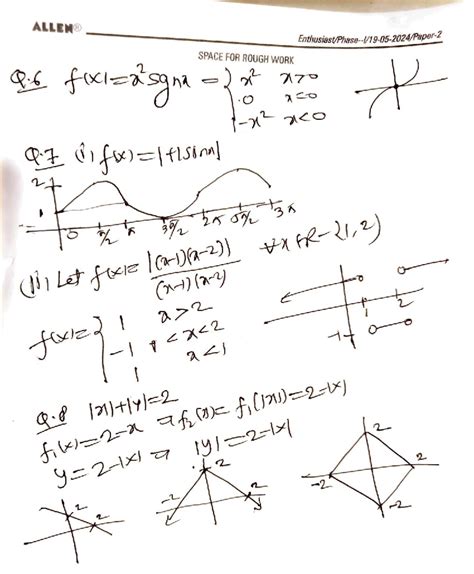 ALLEN®
Enthusiast/Phase--I/19-05-2024/Paper-2
SPACE FOR ROUGH WORK
Q.6 f(x)=x²sgnx = { x² x>0
0 x=0
-x² x<0
Q.7 (i) f(x)=1+|sinx|
2
1
0 π/2 π 3π/2 2π 5π/2 3π
(ii) Let f(x)= |(x-1)(x-2)| / (x-1)(x-2) ∀x ∈R-{1,2}
f(x)= { 1 x>2
-1 1<x<2
1 x<1
1 2
-1
Q.8 |x|+|y|=2
f₁(x)=2-x ⇒f₂(x)= f₁(|x|)=2-|x|
y=2-|x| ⇒ |y|=2-|x|
2 2
-2 2 2
2 -2 2 -2